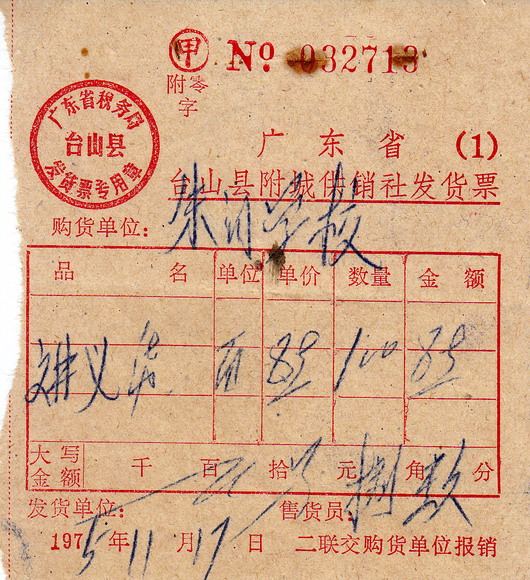 甲 No 032713
附零
字
广东省税务局
台山县
发货票专用章
广东省 (1)
台山县附城供销社发货票
购货单位: 学校
品名 单位 单价 数量 金额
讲义 100
大写
金额 千 百 拾 元 角 分
发货单位: 售货员:
1975年11月17日 二联交购货单位报销